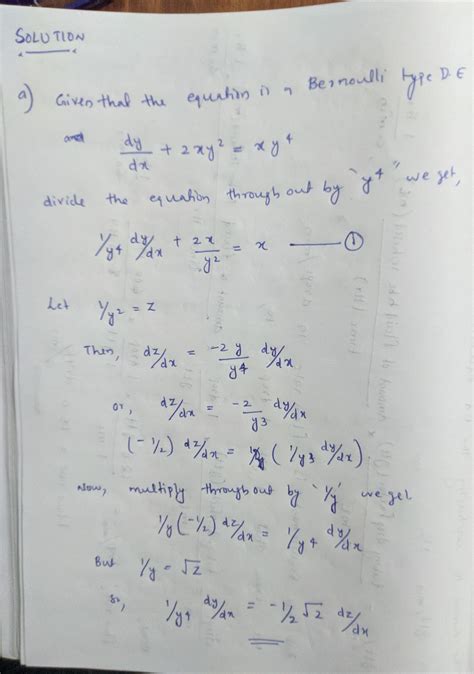 SOLUTION
a) Given that the equation is a Bernoulli type D.E
and dy/dx + 2xy² = xy⁴
divide the equation throughout by "y⁴" we get,
1/y⁴ dy/dx + 2x/y² = x ——— ①
Let 1/y² = z
Then, dz/dx = -2y/y⁴ dy/dx
or, dz/dx = -2/y³ dy/dx
(-1/2) dz/dx = (1/y³ dy/dx)
Now, multiply throughout by '1/y' we get
1/y (-1/2) dz/dx = 1/y⁴ dy/dx
But 1/y = √z
so, 1/y⁴ dy/dx = -1/2 √z dz/dx